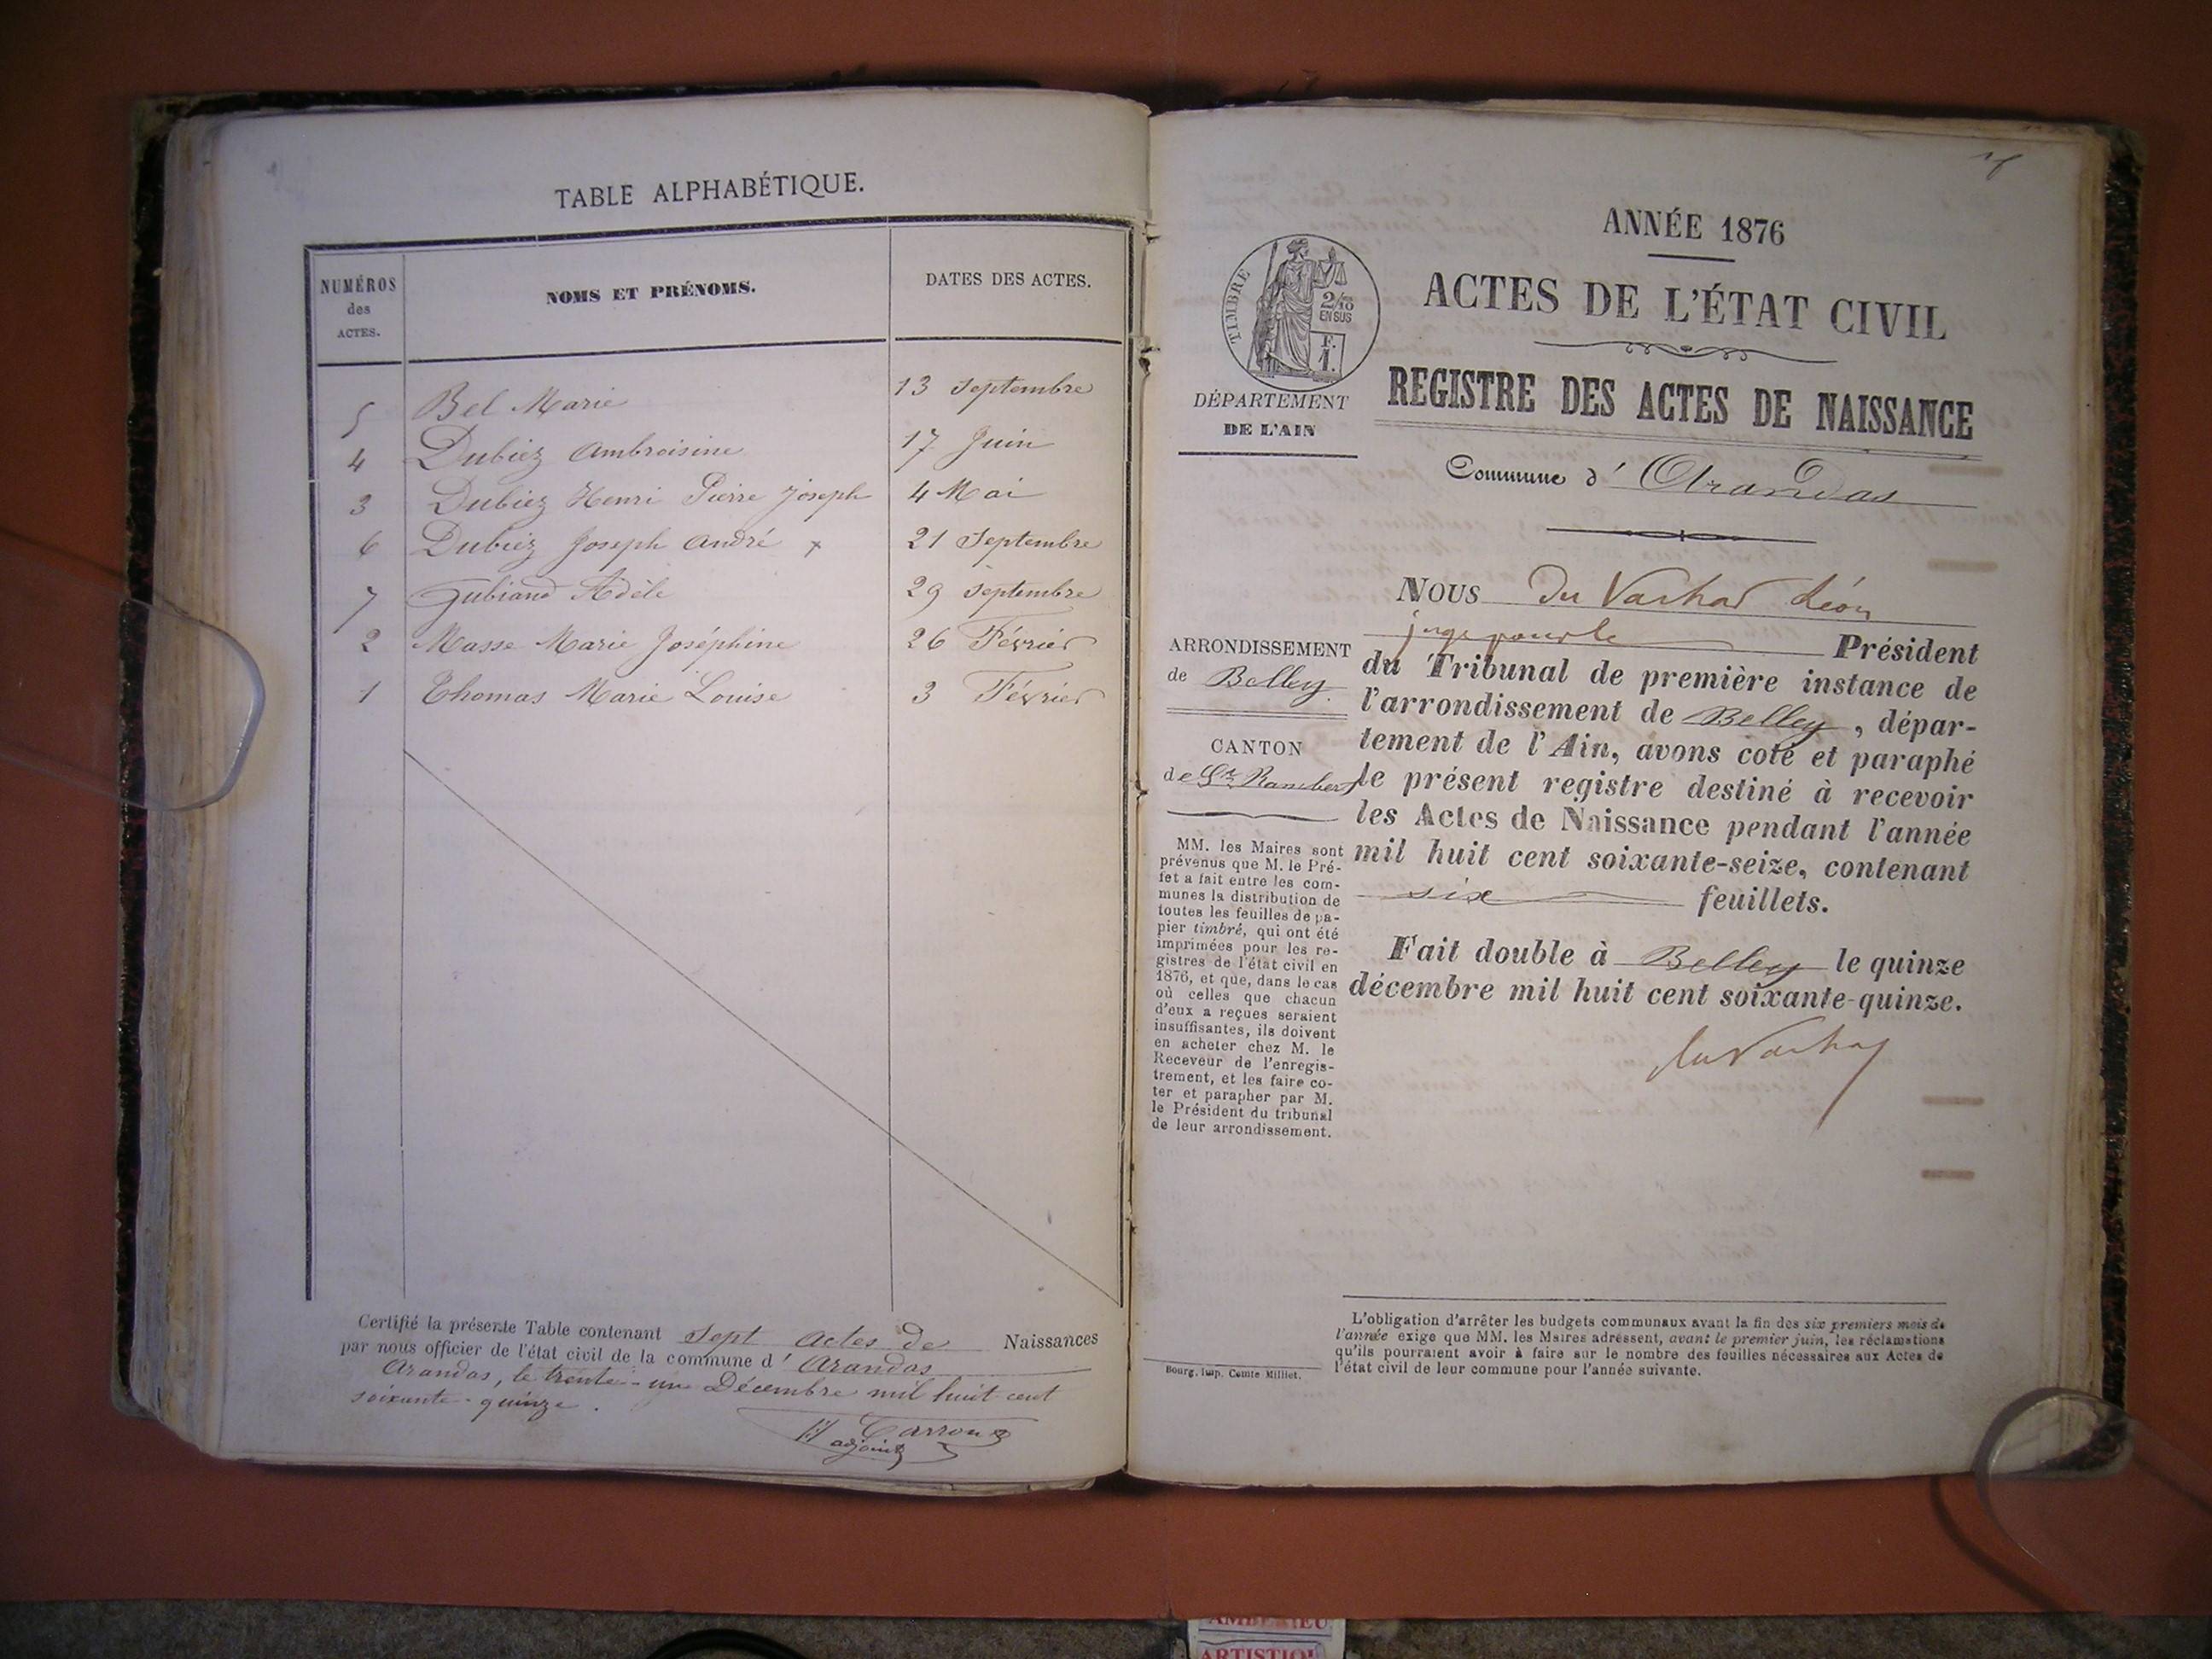 TABLE ALPHABÉTIQUE.
NUMÉROS
des
ACTES.
NOMS ET PRÉNOMS.
DATES DES ACTES.
5 Bel Marie 13 Septembre
4 Dubiez Ambroisine 17 Juin
3 Dubiez Henri Pierre Joseph 4 Mai
6 Dubiez Joseph André x 21 Septembre
7 Gubiand Adèle 29 Septembre
2 Masse Marie Joséphine 26 Février
1 Thomas Marie Louise 3 Février
Certifié la présente Table contenant Sept actes de Naissances
par nous officier de l'état civil de la commune d' Arandas
Arandas, le trente-un Décembre mil huit cent
soixante-quinze.
Carron
adjoint
ANNÉE 1876
ACTES DE L'ÉTAT CIVIL
REGISTRE DES ACTES DE NAISSANCE
TIMBRE
2/10
EN SUS
F.
1.
DÉPARTEMENT
DE L'AIN
Commune d' Arandas
ARRONDISSEMENT
de Belley
CANTON
de St Rambert
MM. les Maires sont
prévenus que M. le Pré-
fet a fait entre les com-
munes la distribution de
toutes les feuilles de pa-
pier timbré, qui ont été
imprimées pour les re-
gistres de l'état civil en
1876, et que, dans le cas
où celles que chacun
d'eux a reçues seraient
insuffisantes, ils doivent
en acheter chez M. le
Receveur de l'enregis-
trement, et les faire co-
ter et parapher par M.
le Président du tribunal
de leur arrondissement.
NOUS Du Vachat Léon
juge pour le Président
du Tribunal de première instance de
l'arrondissement de Belley, dépar-
tement de l'Ain, avons coté et paraphé
le présent registre destiné à recevoir
les Actes de Naissance pendant l'année
mil huit cent soixante-seize, contenant
six feuillets.
Fait double à Belley le quinze
décembre mil huit cent soixante-quinze.
du Vachat
L'obligation d'arrêter les budgets communaux avant la fin des six premiers mois de
l'année exige que MM. les Maires adressent, avant le premier juin, les réclamations
qu'ils pourraient avoir à faire sur le nombre des feuilles nécessaires aux Actes de
l'état civil de leur commune pour l'année suivante.
Bourg, Imp. Comte Milliet.
AMBERIEU
ARTISTIQ